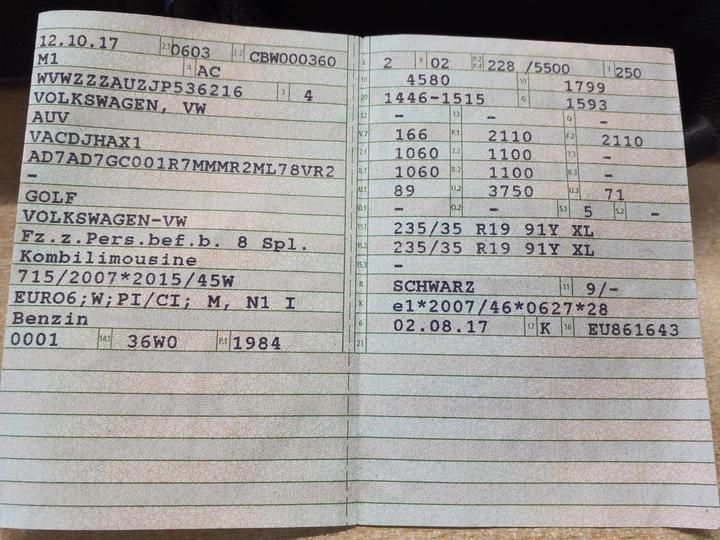 12.10.17 2.1 0603 2.2 CBW000360
M1 4 AC
WVWZZZAUZJP536216 3 4
VOLKSWAGEN, VW
AUV
VACDJHAX1
AD7AD7GC001R7MMMR2ML78VR2
–
GOLF
VOLKSWAGEN-VW
Fz.z.Pers.bef.b. 8 Spl.
Kombilimousine
715/2007*2015/45W
EURO6;W;PI/CI; M, N1 I
Benzin
0001 14.1 36W0 P.1 1984
L 2 9 02 P.2 P.4 228 /5500 T 250
18 4580 19 1799
20 1446-1515 G 1593
12 – 13 – Q –
V.7 166 F.1 2110 F.2 2110
7.1 1060 7.2 1100 7.3 –
8.1 1060 8.2 1100 8.3 –
U.1 89 U.2 3750 U.3 71
O.1 – O.2 – S.1 5 S.2 –
15.1 235/35 R19 91Y XL
15.2 235/35 R19 91Y XL
15.3 –
R SCHWARZ 11 9/-
K e1*2007/46*0627*28
6 02.08.17 17 K 16 EU861643
21